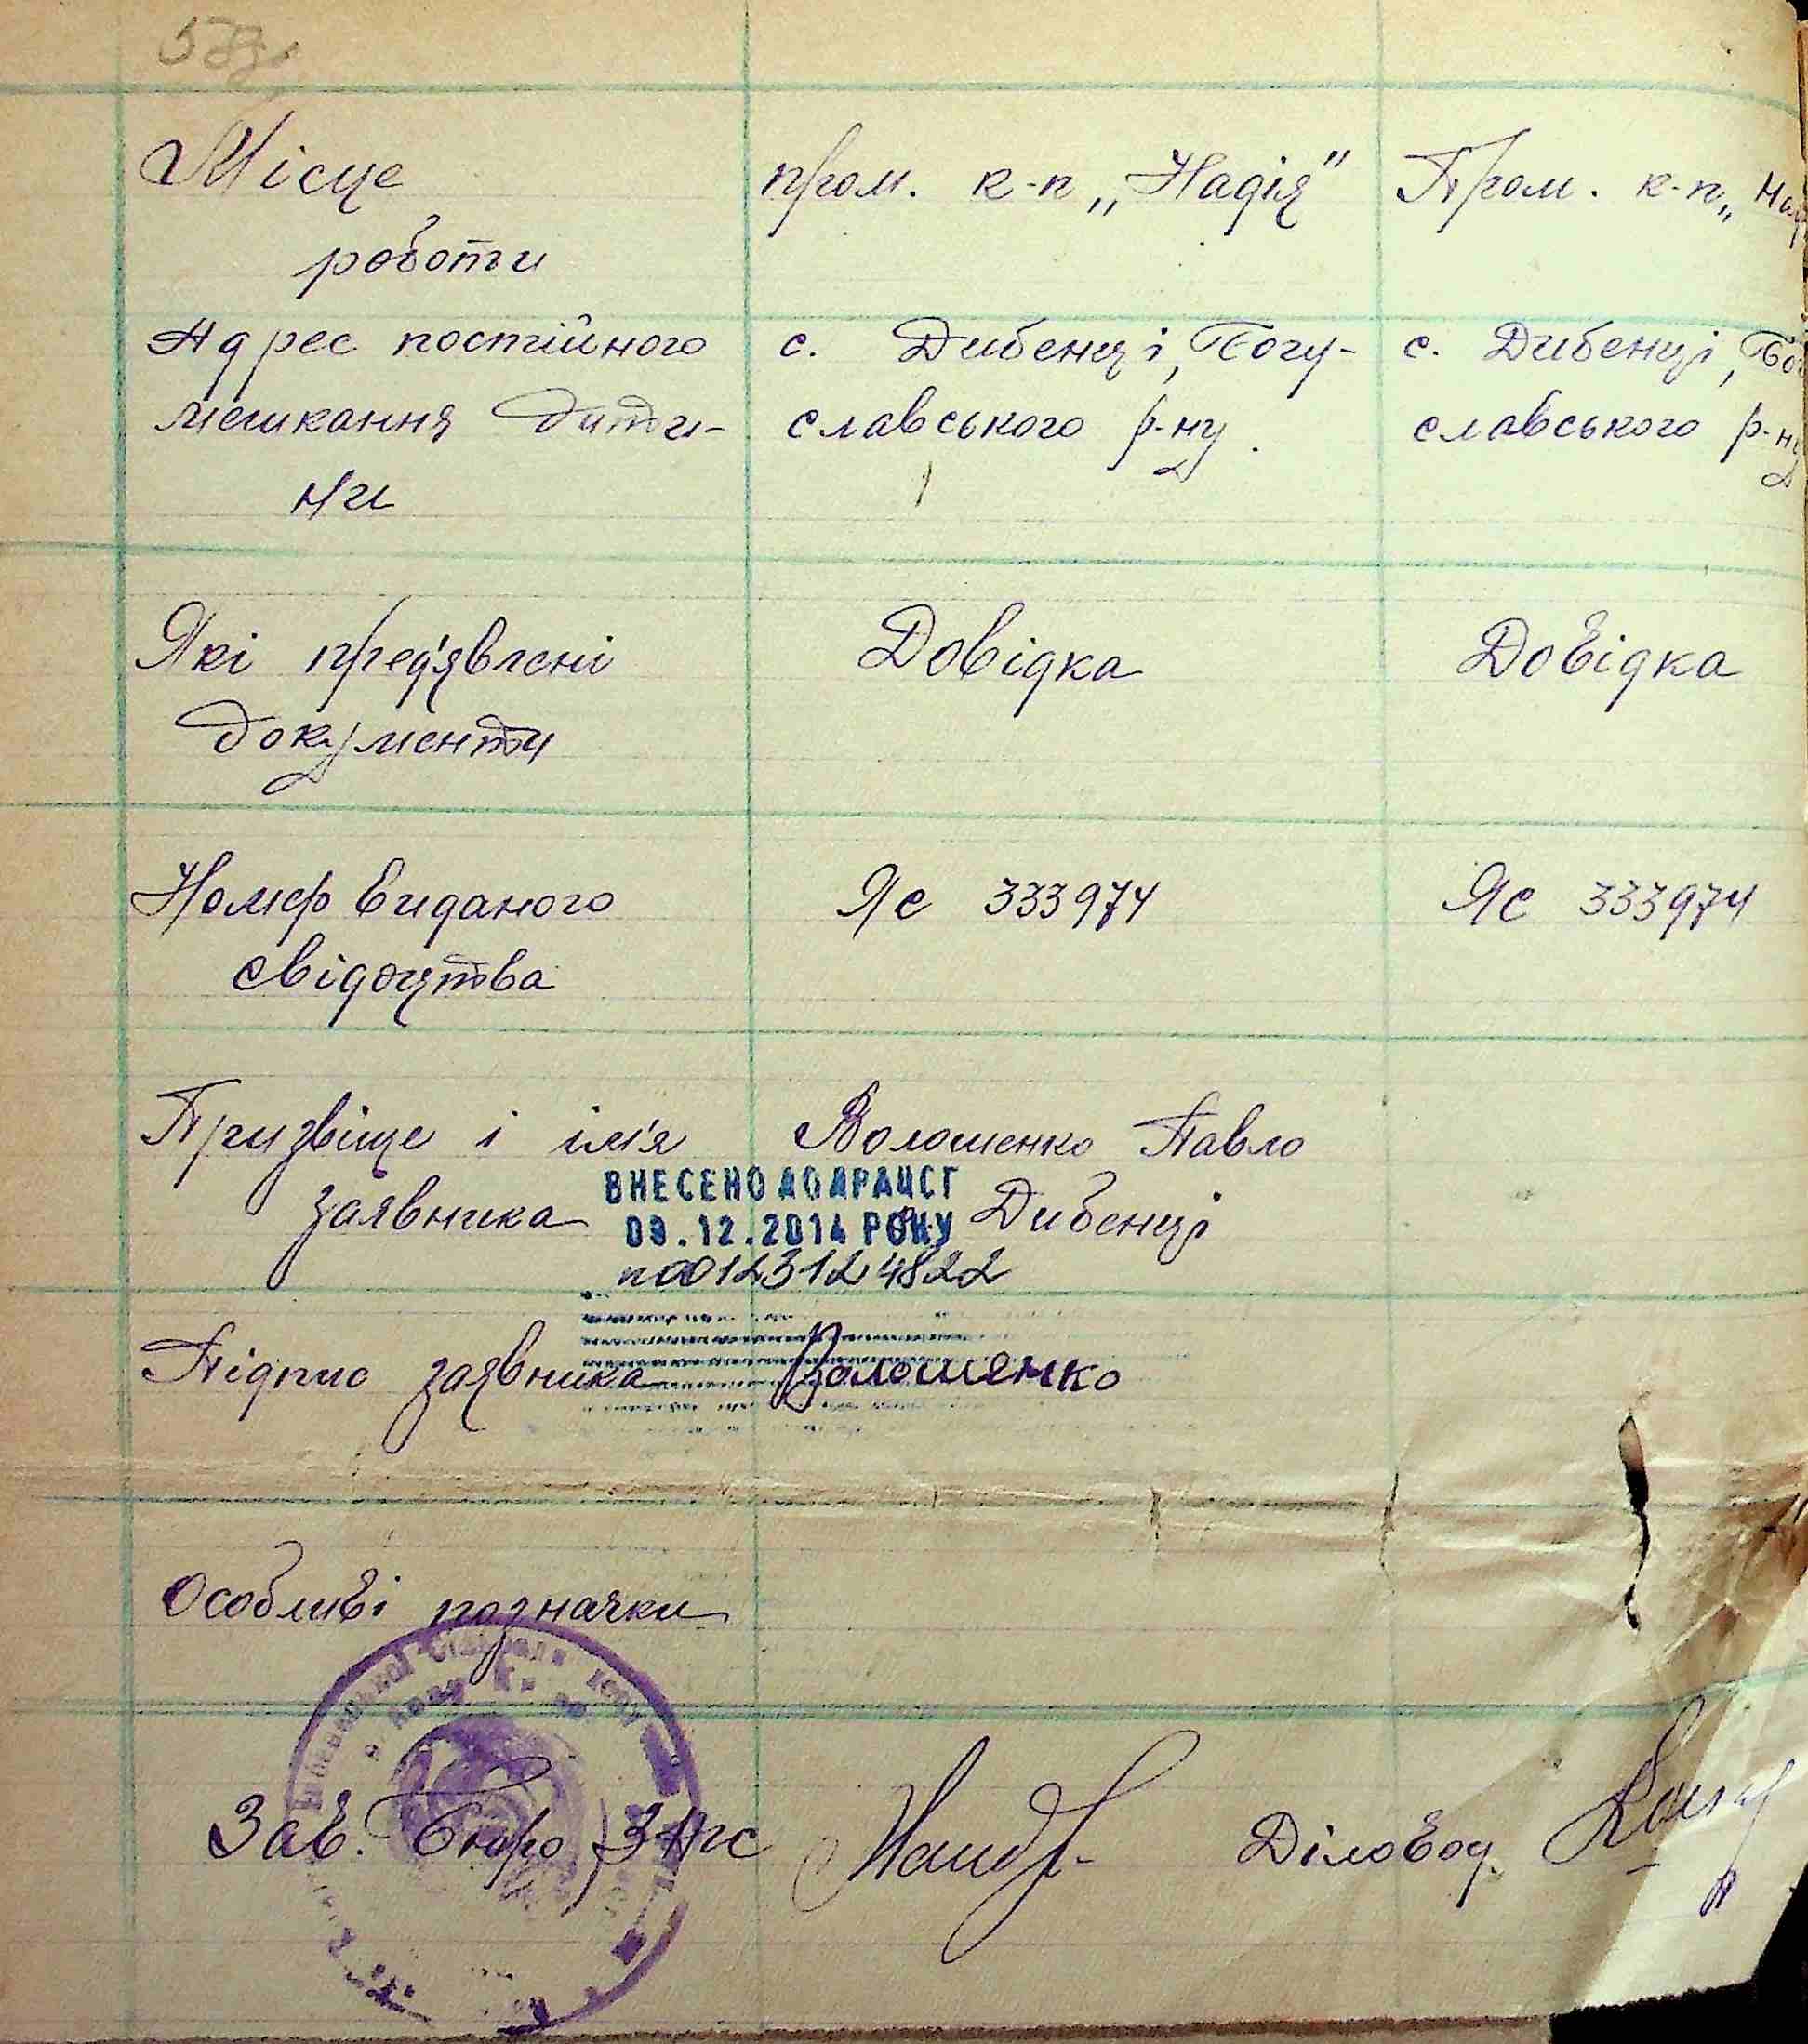 Місце пром. к-п „Надія" Пром. к-п „
роботи
Адрес постійного с. Дибенці, Богу- с. Дибенці, Бо
мешкання дити- славського р-ну. славського р-ну
ни
Які пред'явлені Довідка Довідка
документи
Номер виданого ЯС 333974 ЯС 333974
свідоцтва
Призвіще і ім'я Волошенко Павло
заявника Дибенці
ВНЕСЕНО ДО ДРАЦСГ
09.12.2014 РОКУ
00123124822
Підпис заявника Волошенко
Особливі позначки
Зав. Бюро ЗАГС Діловод